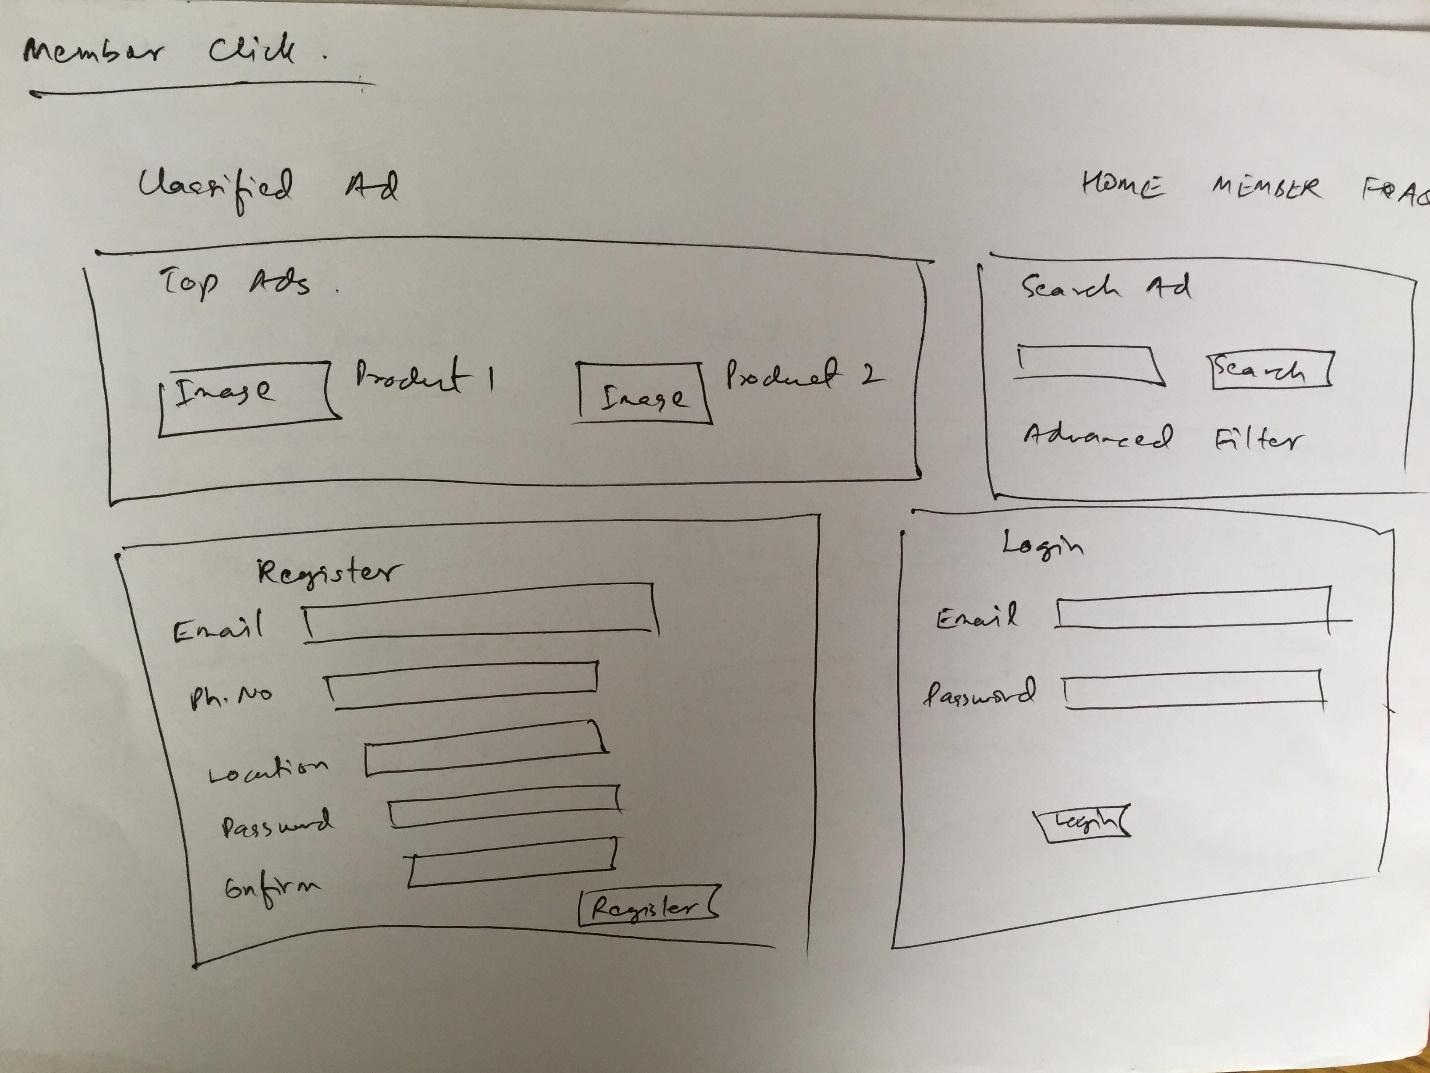 Member Click.
Classified Ad
HOME MEMBER
Top Ads.
Image Product 1
Image Product 2
Search Ad
Search
Advanced Filter
Register
Email
Ph. No
Location
Password
Confirm
Register
Login
Email
Password
Login